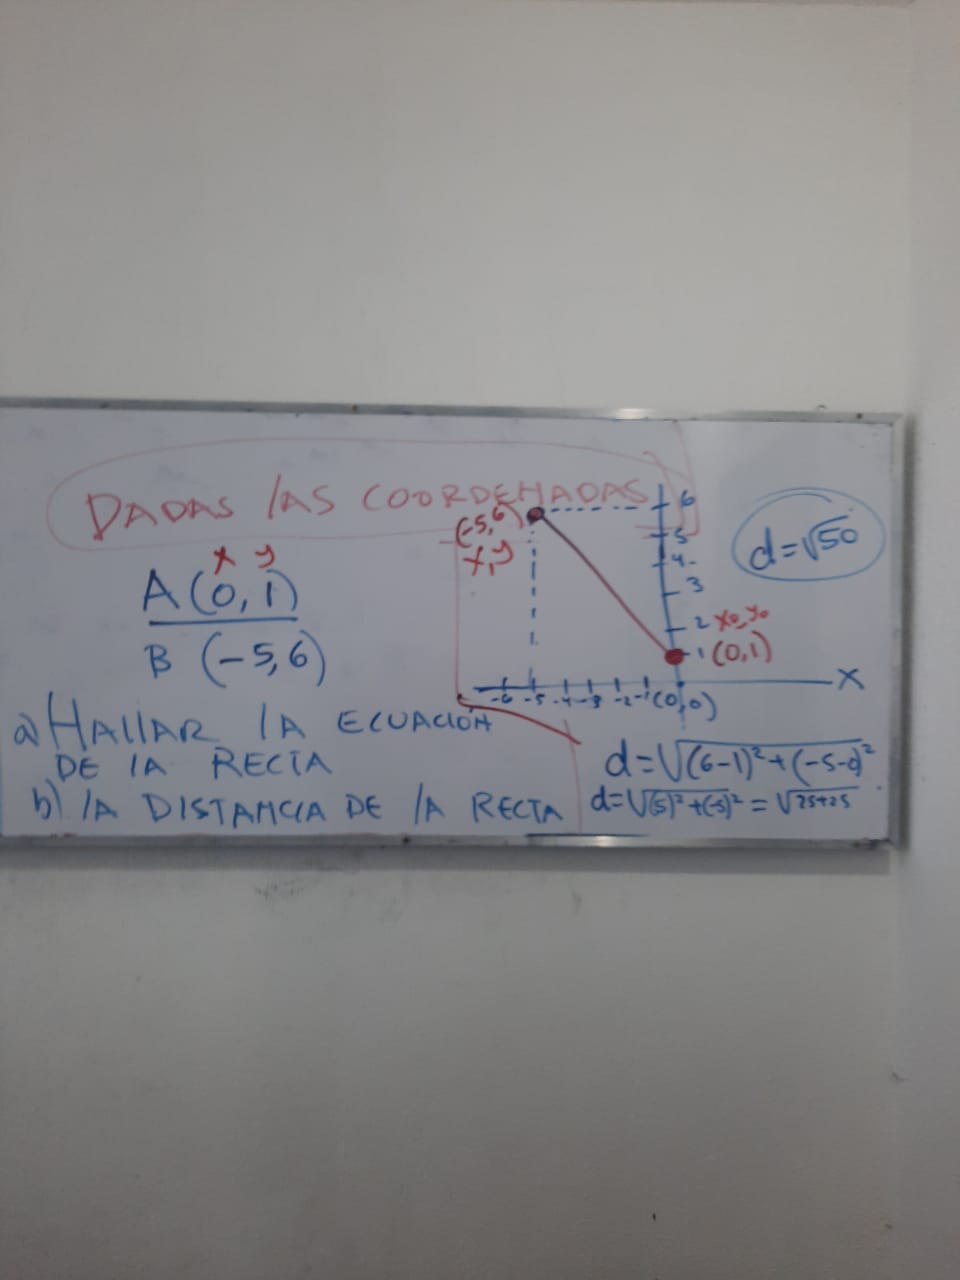 DADAS LAS COORDENADAS
x y
A (0, 1)
B (-5, 6)
a) HALLAR LA ECUACIÓN
DE LA RECTA
b) LA DISTANCIA DE LA RECTA
(-5, 6)
x, y
6
5
4
3
2 x₀, y₀
1 (0, 1)
-6 -5 -4 -3 -2 -1 (0,0) X
d=√50
d=√(6-1)²+(-5-0)²
d=√(5)²+(-5)² = √25+25